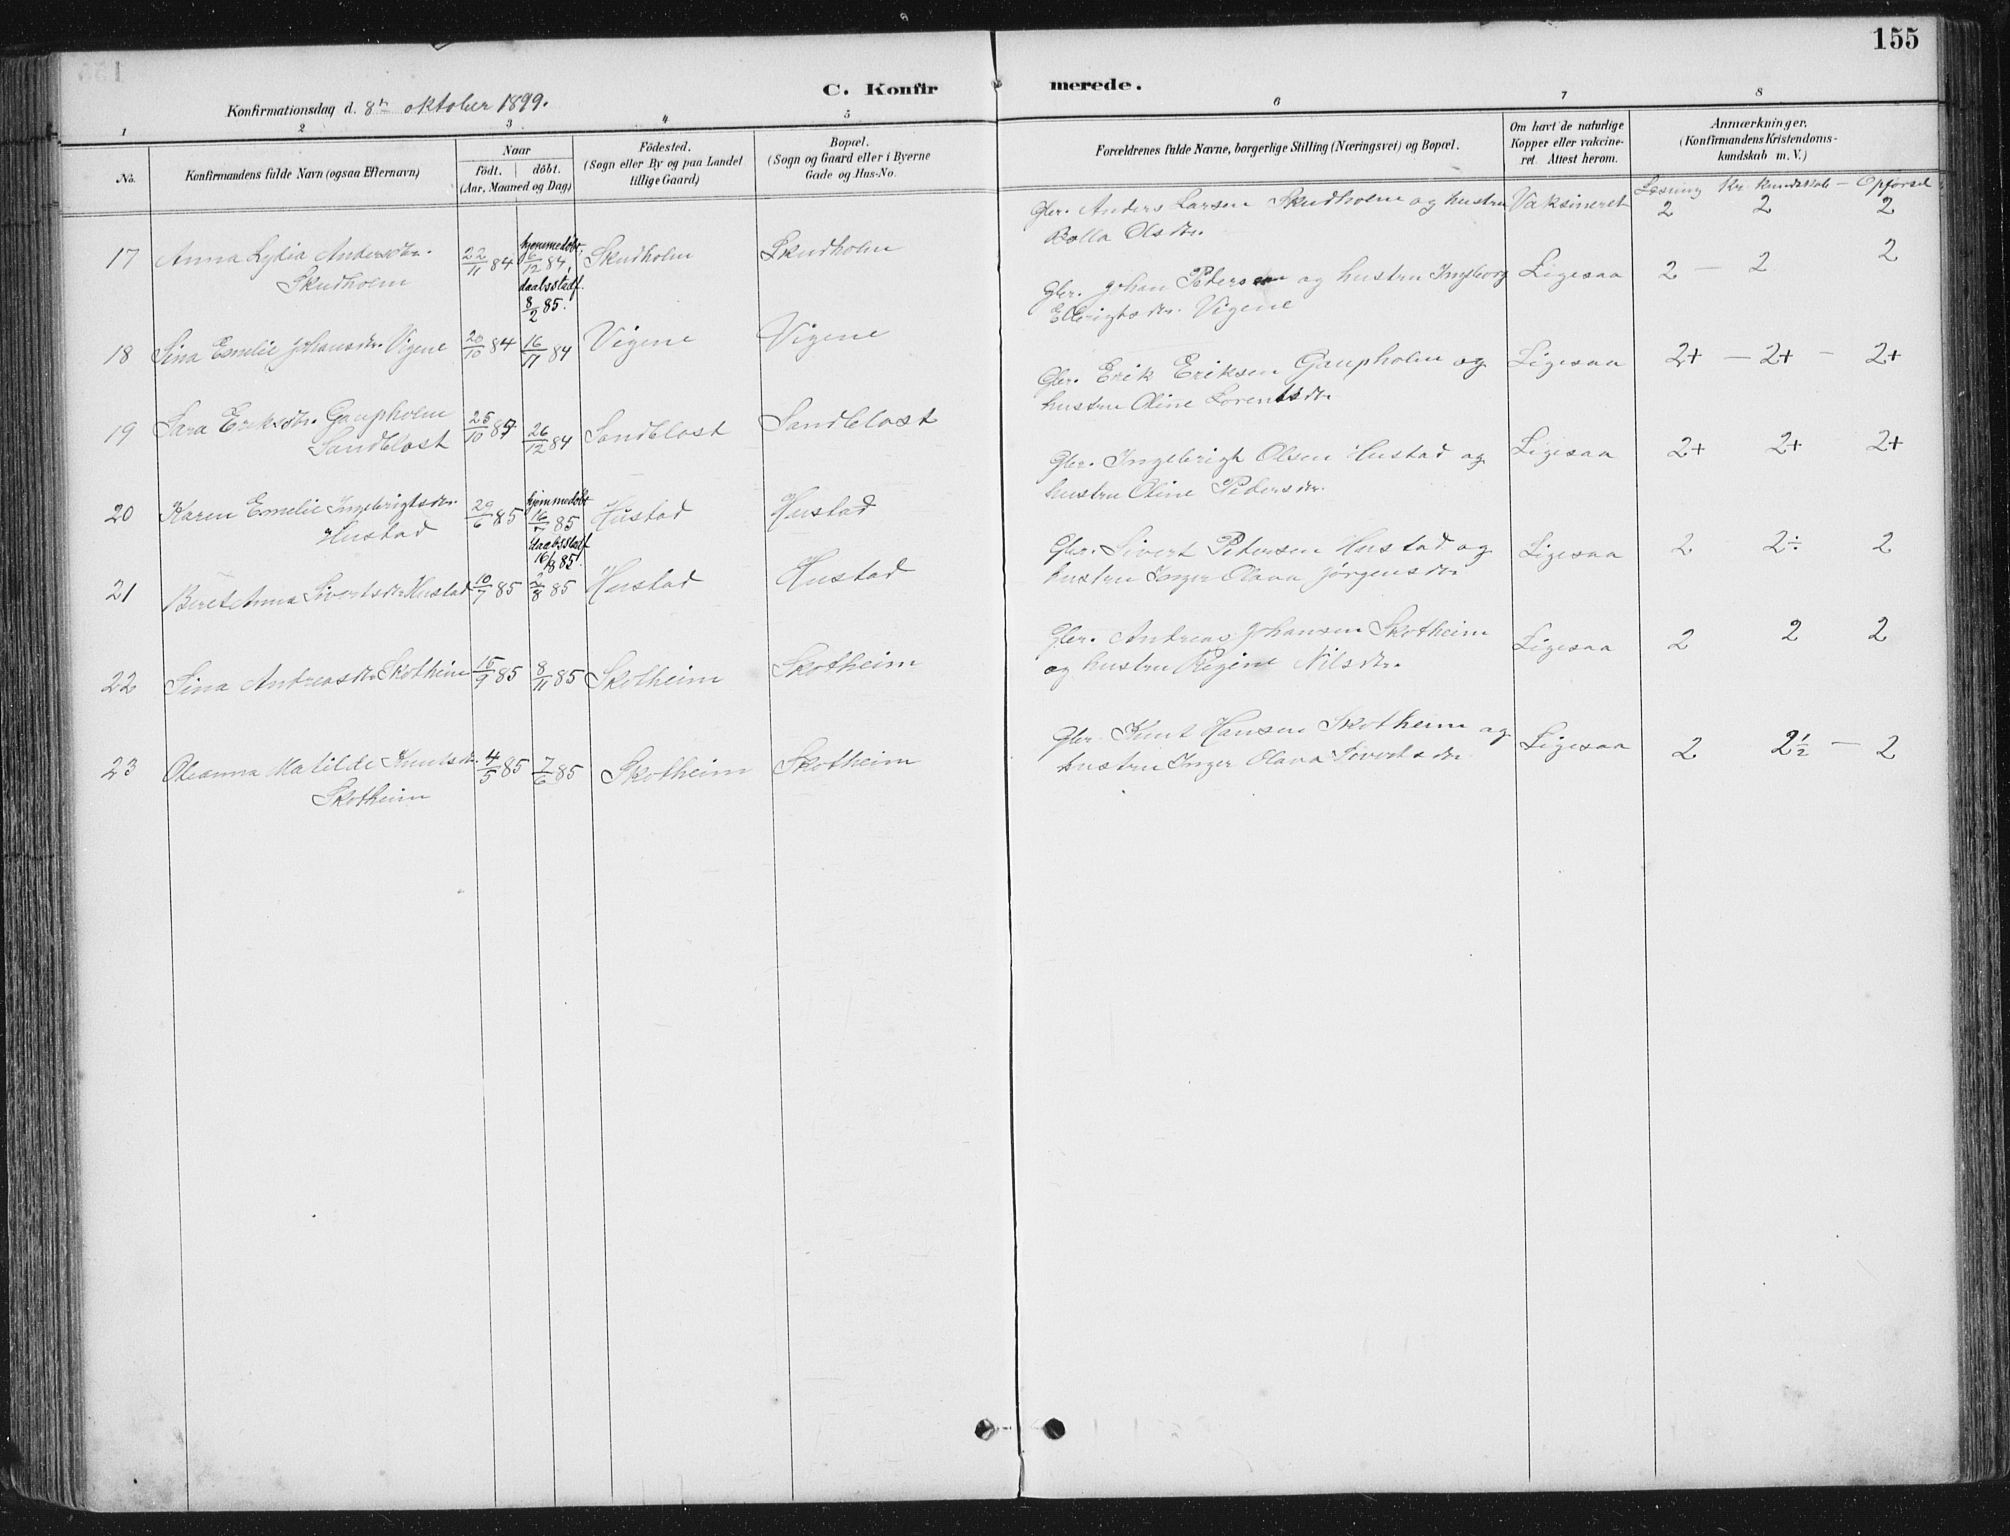 155
C. Konfirmerede.
Konfirmationsdag d. 8de oktober 1899.
1 2 3 4 5 6 7 8
No.
Konfirmandens fulde Navn (ogsaa Efternavn)
Naar
födt. döbt.
(Aar, Maaned og Dag)
Födested.
(Sogn eller By og paa Landet
tillige Gaard)
Bopæl.
(Sogn og Gaard eller i Byerne
Gade og Hus-No.
Forældrenes fulde Navne, borgerlige Stilling (Næringsvei) og Bopæl.
Om havt de naturlige
Kopper eller vakcine-
ret. Attest herom.
Anmærkninger.
(Konfirmandens Kristendoms-
kundskab m. V.)
Læsning Kr. kundskab – Opførsel
17 Anna Lydia Andersdtr. Skudholm
22/11 84
hjemmedøbt 6/12 84, daabsstadf. 8/2 85.
Skudholm
Skudholm
Gbr. Anders Larsen Skudholm og hustru
Bolla Olsdtr.
Vaksineret
2 2 2
18 Sina Emelie Johansdtr. Vigene
20/10 84 16/11 84
Vigene
Vigene
Gbr. Johan Pedersen og hustru Ingeborg
Ellingsdtr. Vigene
Ligesaa
2 – 2 2
19 Sara Eriksdtr. Gaupholm
Sandblost
25/10 84 26/12 84
Sandblost
Sandblost
Gbr. Erik Eriksen Gaupholm og
hustru Oline Lorentsdtr
Ligesaa
2+ – 2+ – 2+
20 Karen Emelie Ingebrigtsdtr.
Hustad
29/6 85
hjemmedøbt 16/7 85 daabsstadf. 16/8 85.
Hustad
Hustad
Gbr. Ingebrigt Olsen Hustad og
hustru Oline Pedersdtr.
Ligesaa
2+ 2+ 2+
21 Beret Anna Sivertsdtr Hustad
10/7 85 2/8 85
Hustad
Hustad
Gbr. Sivert Petersen Hustad og
hustru Inger Olava Jørgensdtr
Ligesaa
2 2÷ 2
22 Sina Andreasdtr Skotheim
15/9 85 8/11 85
Skotheim
Skotheim
Gbr. Andreas Johansen Skotheim
og hustru Regine Nilsdtr.
Ligesaa
2 2 2
23 Oleanna Matilde Knutsdtr.
Skotheim
4/5 85 7/6 85
Skotheim
Skotheim
Gbr. Knut Hansen Skotheim og
hustru Inger Olava Sivertsdtr
Ligesaa
2 2½ – 2